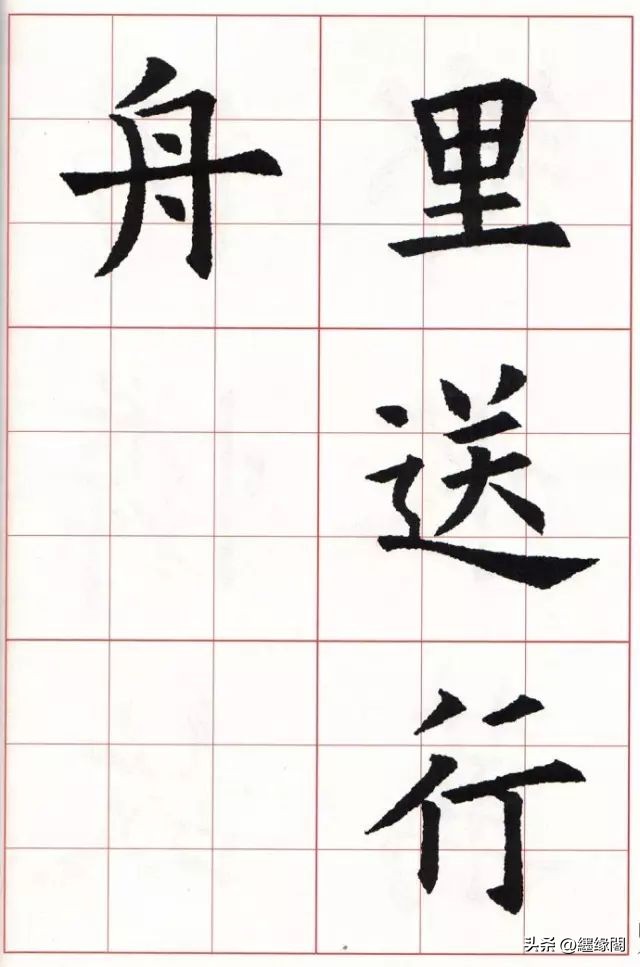 里送行
舟
头条 @纒缘閣